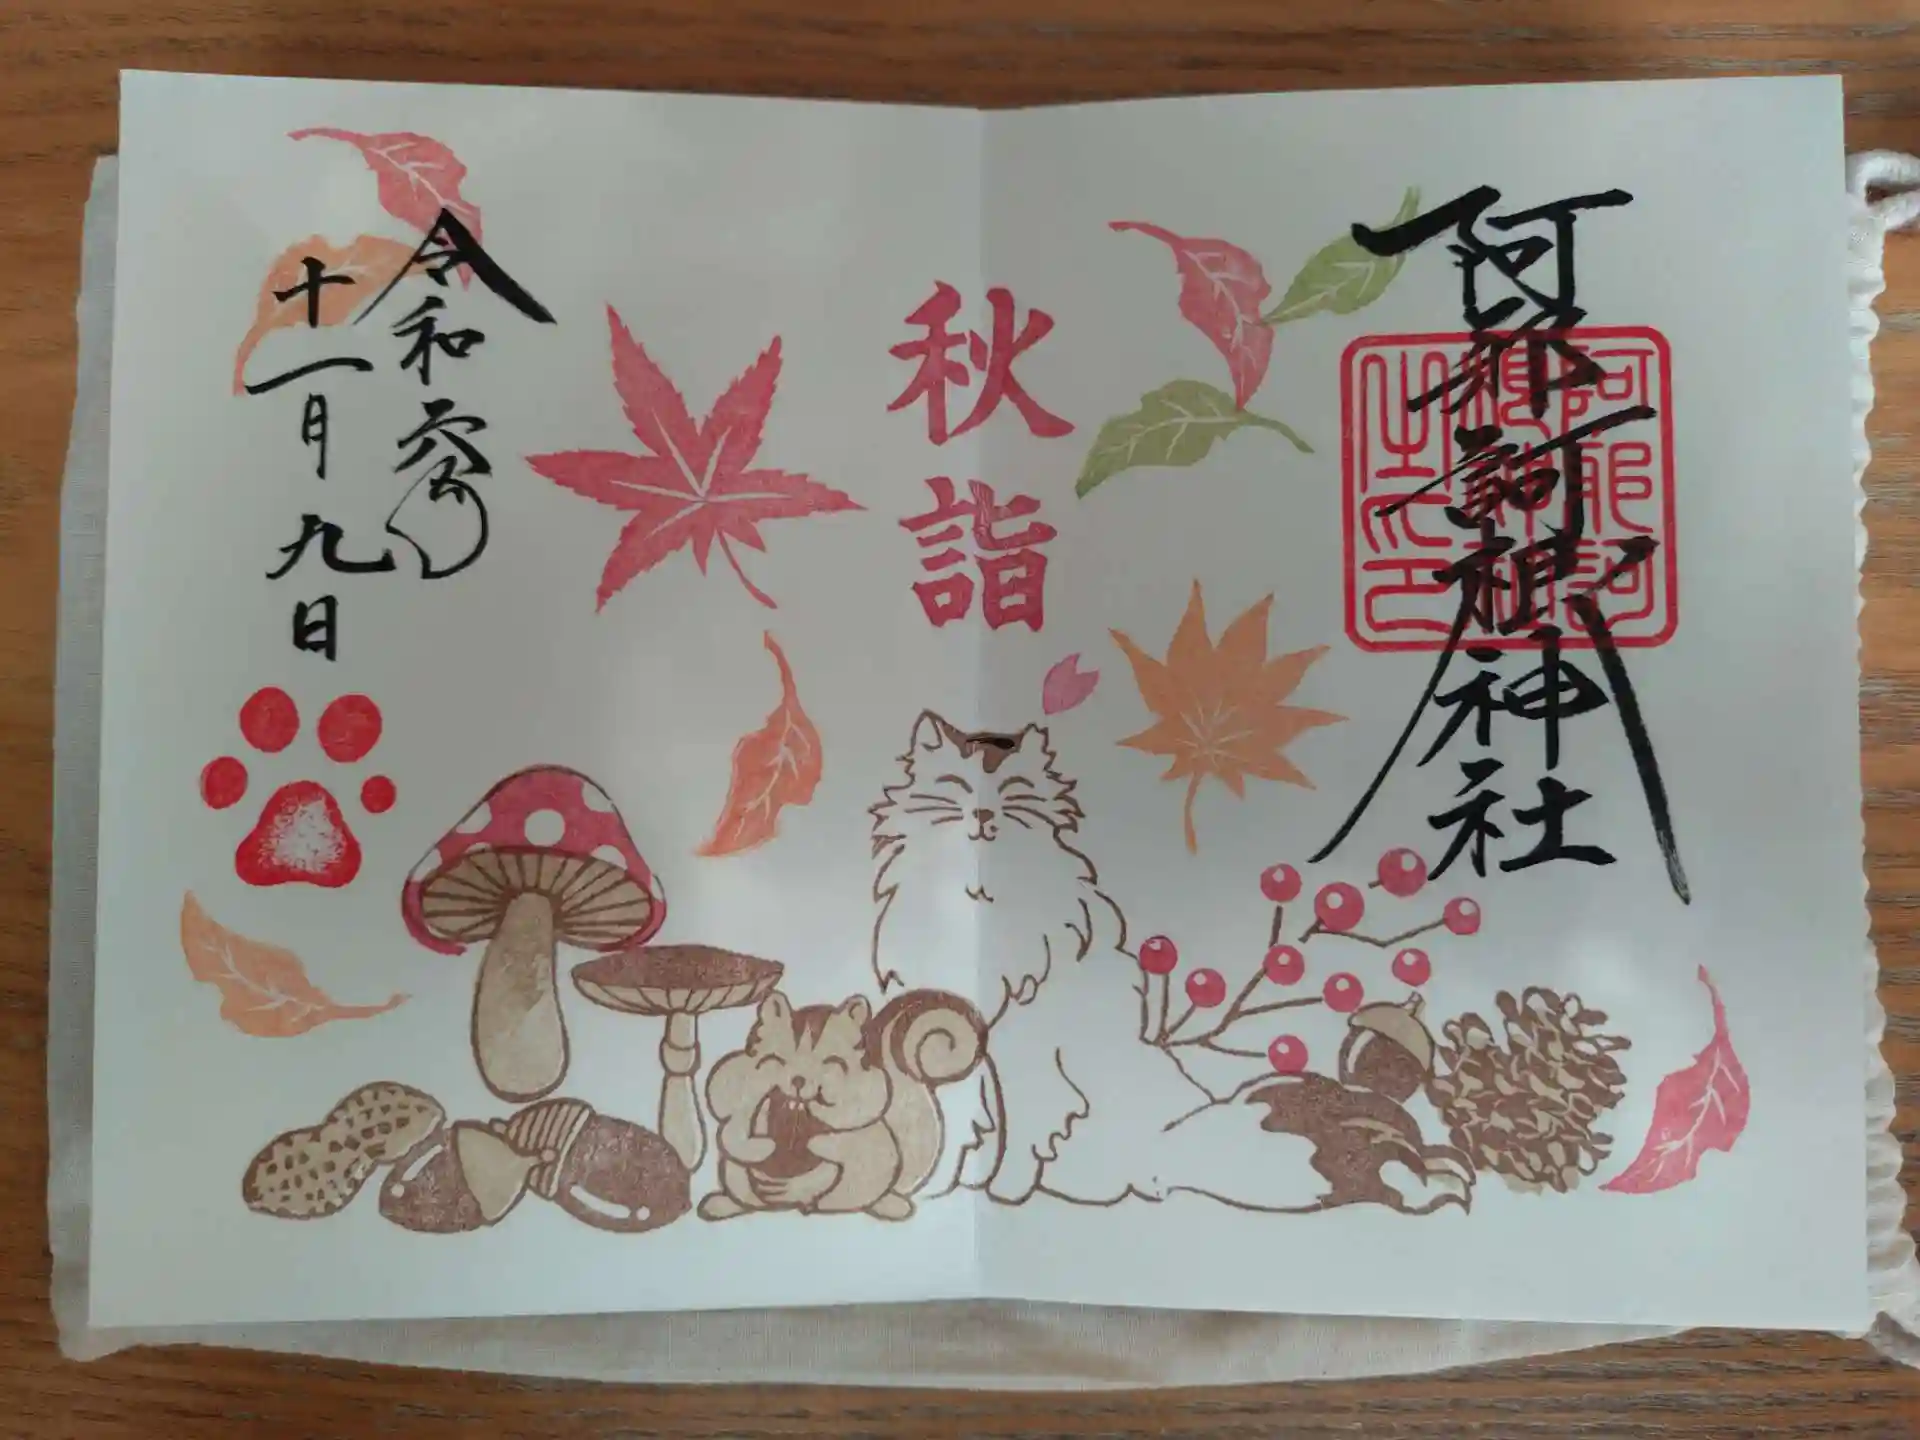 阿邪訶根神社
阿邪訶根神社之印
秋詣
令和六年
十一月九日